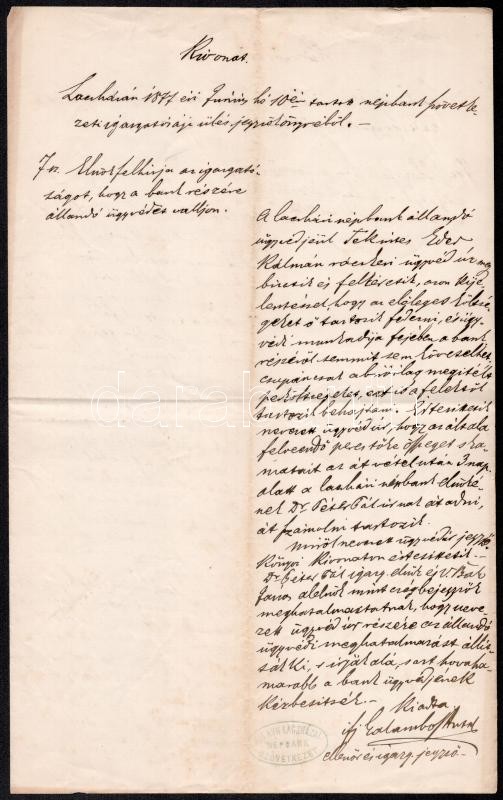 Kivonat.
Laczházán 1877 évi Junius hó 10én tartott népbank szövetke-
zeti igazgatósági ülés jegyzőkönyvéből. –
7 sz. Elnök felhívja az igazgató-
ságot, hogy a bank részére
állandó ügyvédet valljon.
A laczházi népbank állandó
ügyvédjéül Tekintetes Eder
Kálmán ráczkevi ügyvéd úr meg
bizatik és felkéretik, azon kije-
lentéssel, hogy az előleges költsé-
geket ő tartozik fedezni, és ügy-
védi munkadíja fejében a bank
részéről semmit sem követelhet,
csupán csak a bíróilag megítélt
perköltségeket, ezt is a felektől
tartozik behajtani. Értesíttetik
nevezett ügyvéd úr, hogy az általa
felveendő peres tőke összeget s ka-
matait az átvétel után 3 nap
alatt a laczházi népbank elnöké-
nek Dr. Péter Pál úrnak átadni,
átszámolni tartozik.
Miről nevezett ügyvéd úr jegyző-
könyvi kivonaton értesíttetik. –
Dr. Péter Pál igazg. elnök és V. Bak
János alelnök mint czégbejegyzők
meghatalmaztatnak, hogy neve-
zett ügyvéd úr részére az állandó
ügyvédi meghatalmazást állit-
sák ki, s írják alá, s azt hova ha-
marabb a bank ügyvédjének
kézbesítsék. –
Kiadta
ifj Galambos Antal
ellenőr és igazg. jegyző –
NÉPBANK
SZÖVETKEZET
darabanth